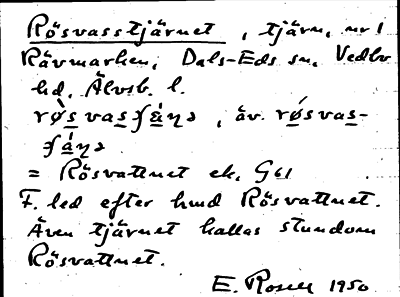 Rösvasstjärnet, tjärn, nr 1
Rävmarken, Dals-Eds sn, Vedbo
hd, Älvsb. l.
= Rösvattnet ek, G61
F. led efter hmd Rösvattnet.
Även tjärnet kallas stundom
Rösvattnet.
E. Rosell 1950